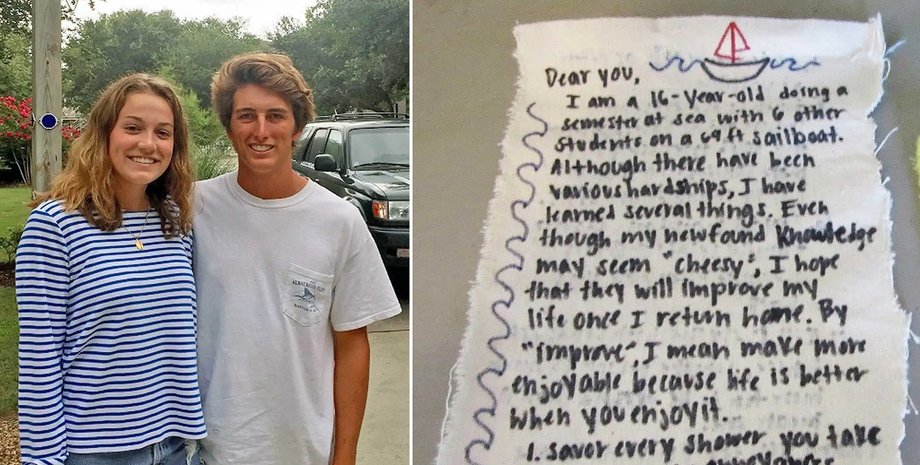 Dear you,
I am a 16-year-old doing a
semester at sea with 6 other
students on a 69ft sailboat.
Although there have been
various hardships, I have
learned several things. Even
though my newfound knowledge
may seem "cheesy", I hope
that they will improve my
life once I return home. By
"improve", I mean make more
enjoyable because life is better
when you enjoy it.
1. savor every shower you take